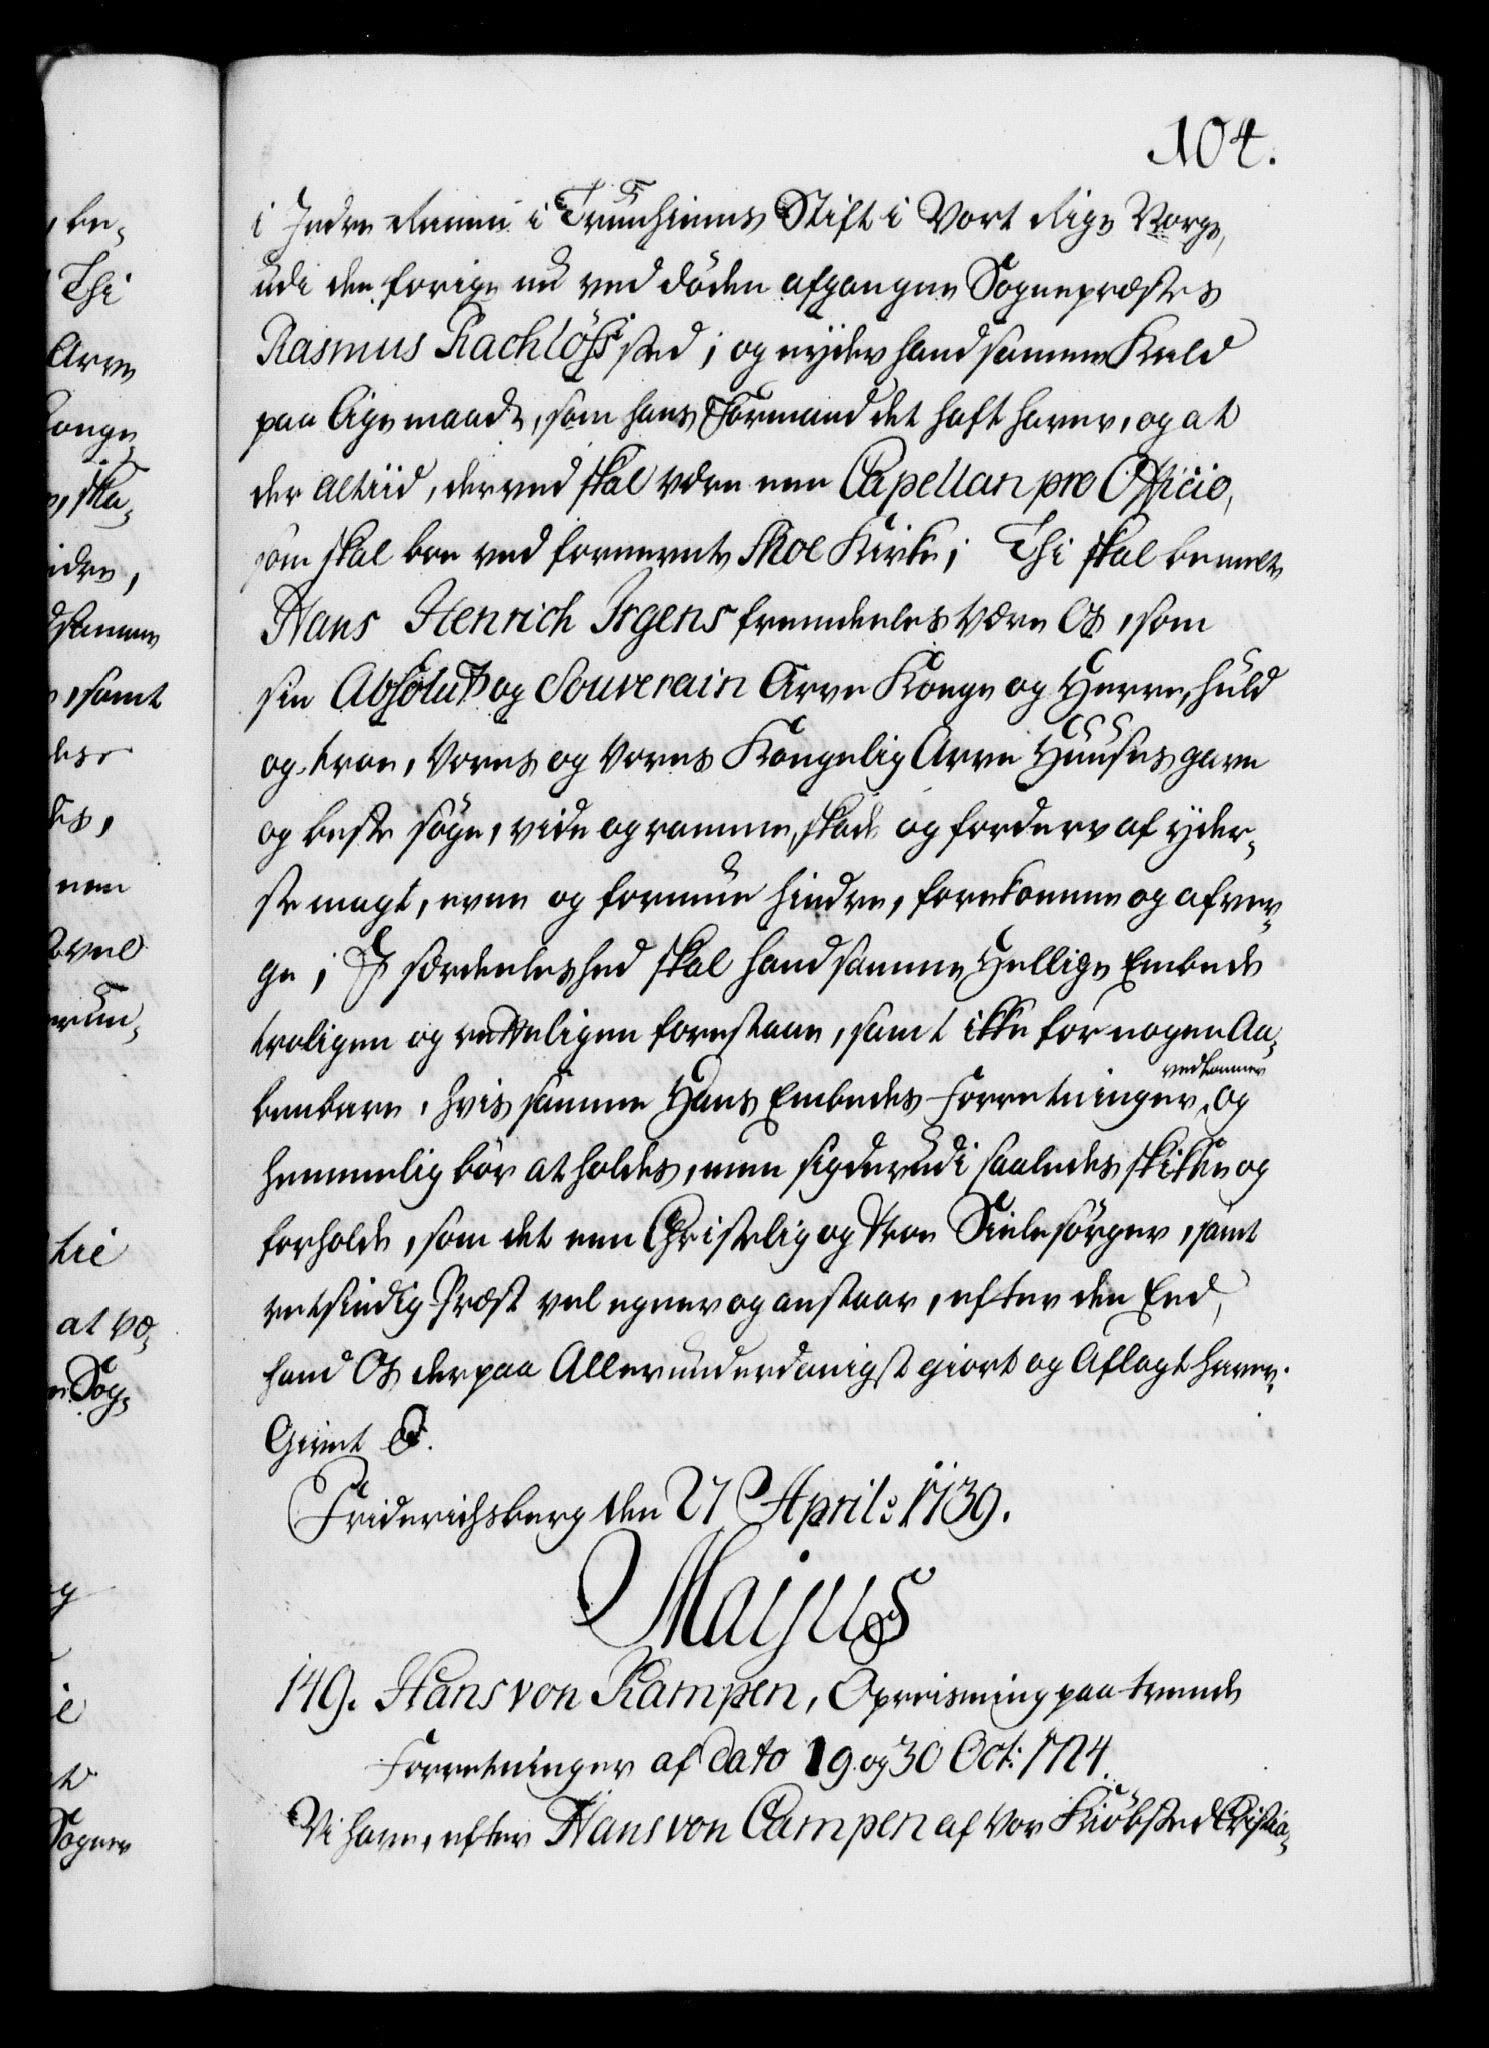 104.
i Indre Rannu i Trunhiems Stift i Vort Rige Norge,
udi den forige nu ved döden afgangne Sognepræstes
Rasmus Rachlöfs sted; og nyder hand samme Kald
paa lige maade, som hans Formand det haft haver, og at
der altiid, derved skal være een Capellan pro Officio,
som skal boe ved fornevnte Moe Kirke; Thi skal bemelte
Hans Henrich Irgens fremdeeles være Os, som
sin Absolut og Souverain Arve Konge og Herre, huld
og troe, Vores og Vores Kongelig Arve Huuses gavn
og beste söge, vide og ramme, skade og forderv af yder-
ste magt, evne og formue hindre, forekomme og afver-
ge; I særdeeleshed skal hand samme Hellige Embede
troligen og retteligen forestaae, samt ikke for nogen Aa-
benbare, hvis samme Hans Embedes Forretninger vedkommer og
hemmelig bör at holdes, men sig derudi saaledes skikke og
forholde, som det een Christelig og Troe Siælesörger, samt
retsindig Præst vel egner og anstaar, efter den Eed,
hand Os derpaa Allerunderdanigst giort og Aflagt haver.
Givet &.
Friderichsberg den 27 April: 1739.
Maijus
149. Hans von Kampen, Opreisning paa tvende
Forretninger af dato 19. og 30 Oct: 1724.
Vi have, efter Hans von Campen af Vor Kiöbsted Christia-
, be-
Thi
Arve
Konge
, ska-
idre,
samme
, samt
des
des,
een
saavel
trun-
tie
at væ-
Sog-
og
ie
Sogner